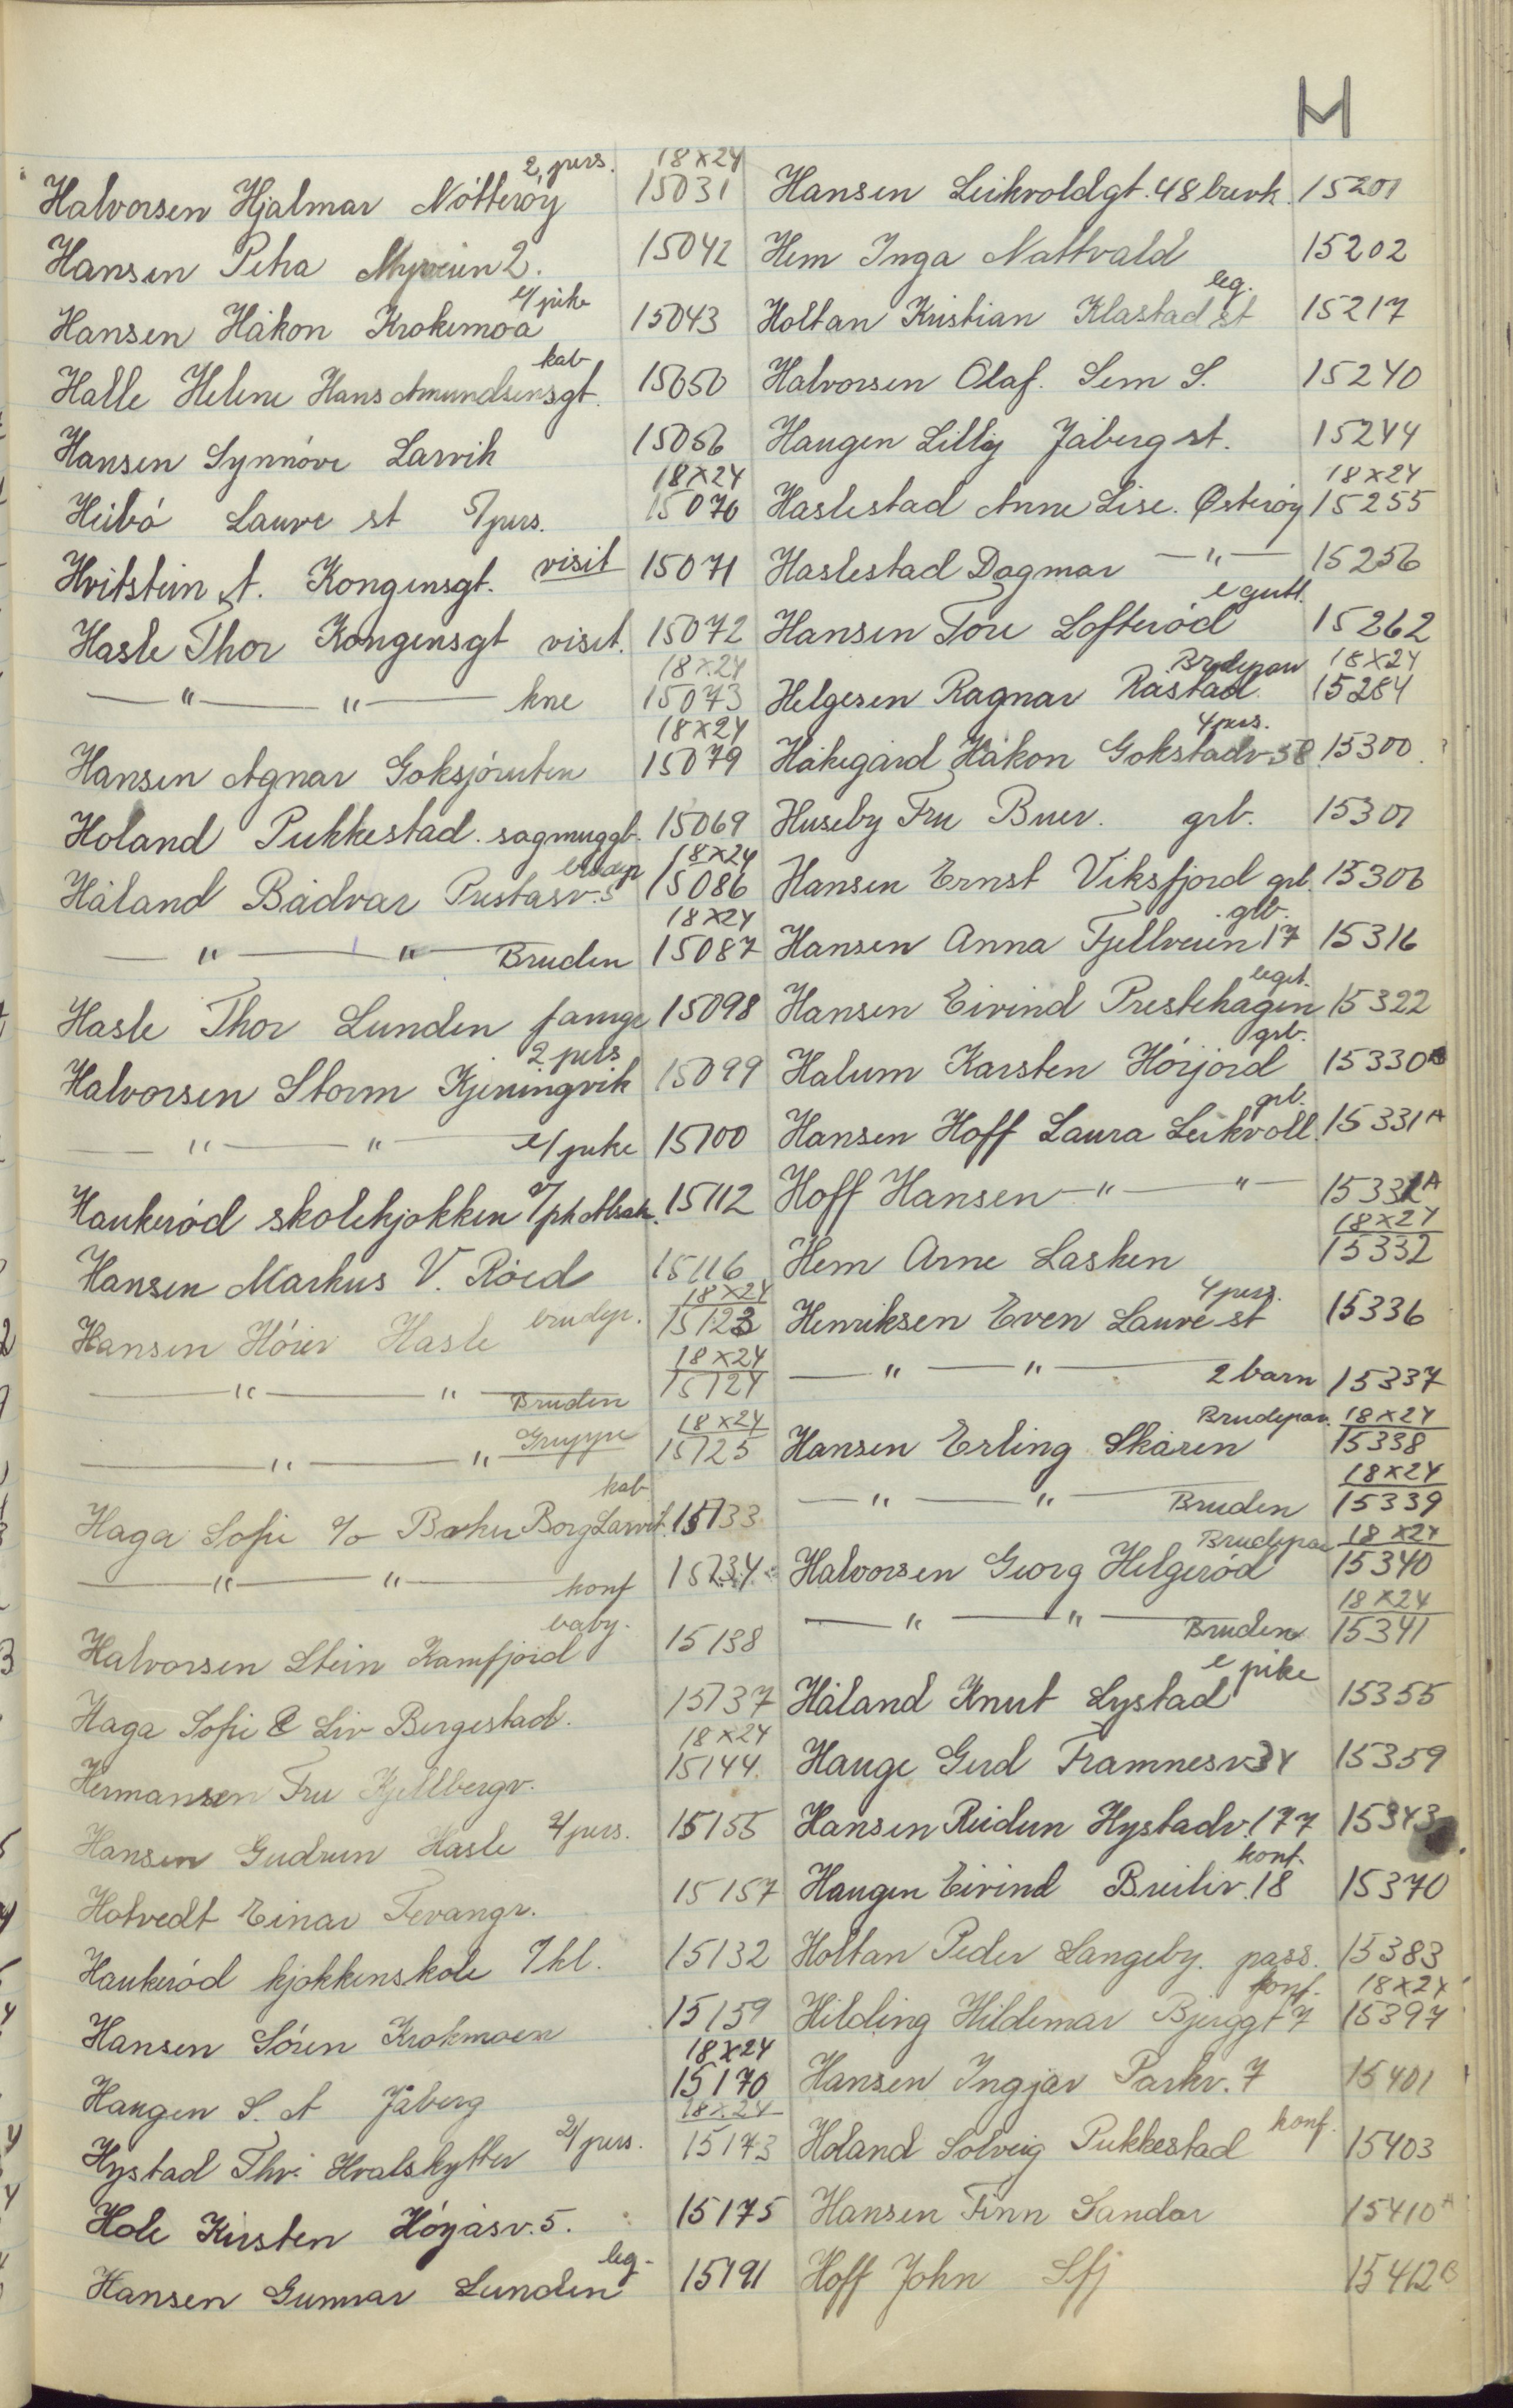 H
Halvorsen Hjalmar Nötteröy 2 pers. 18x24 15031
Hansen Petra Nyveien 2. 15042
Hansen Håkon Krokemoa e/pike 15043
Halle Helene Hans Amundsensgt. kab 15050
Hansen Synnöve Larvik 15056
Heibö Lauve st 5/pers. 18x24 15070
Hvitstein A. Kongensgt. visit 15071
Hasle Thor Kongensgt visit. 15072
— " — " — kne 18x24 15073
Hansen Agnar Goksjöruten 18x24 15079
Holand Pukkestad. 15069
Håland Bådvar Prestasv. 5 brudep 18x24 15086
— " — " — Bruden 18x24 15087
Hasle Thor Lunden 15098
Halvorsen Storm Kjeningvik 2 pers 15099
— " — " — e/pike 15100
Haukeröd skolekjökken 15112
Hansen Markus V. Röed 15116
Hansen Höier Hasle brudep. 18x24 15123
— " — " — Bruden 18x24 15124
— " — " Gruppe 18x24 15125
Haga Sofie c/o Borg Larvik kab 15133
— " — " — konf 15134
Halvorsen Stein Kamfjord baby. 15138
Haga Sofie & Liv Bergestad. 15137
Hermansen Fru Kjellbergv. 18x24 15144
Hansen Gudrun Hasle 4/pers. 15155
Hotvedt Einar Fevangv. 15157
Haukeröd kjökkenskole 7 kl. 15132
Hansen Sören Krokmoen 15159
Haugen S. A Jåberg 18x24 15170
Hystad Thv. Hvalskytter 2/pers. 18x24 15173
Hole Kirsten Höyåsv. 5. 15175
Hansen Gunnar Lunden leg. 15191
Hansen Leikvoldgt. 48 brevk. 15201
Hem Inga Nattvald 15202
Holtan Kristian Klastad st leg. 15217
Halvorsen Olaf. Sem S. 15240
Haugen Lilly Jåberg st. 15244
Haslestad Anne Lise. Østeröy 18x24 15255
Haslestad Dagmar — " — 15256
Hansen Tore Lofteröd e gutt. 15262
Helgesen Ragnar Råstad. Brudepar 18x24 15284
Håkegård Håkon Gokstadv 58 4 pers. 15300
Huseby Fru Buer. grb. 15301
Hansen Ernst Viksfjord grb. 15306
Hansen Anna Fjellveien 17 grb. 15316
Hansen Eivind Prestehagen leget. 15322
Halum Karsten Hörjord grb. 15330 B
Hansen Hoff Laura Leikvoll grb. 15331 A
Hoff Hansen — " — " — 15332 A
Hem Arne Lasken 18x24 15332
Henriksen Even Lauve st 4 pers. 15336
— " — " — 2 barn 15337
Hansen Erling Skåren Brudepar. 18x24 15338
— " — " — Bruden 18x24 15339
Halvorsen Georg Helgeröd Brudepar 18x24 15340
— " — " — Bruden 18x24 15341
Håland Knut Lystad e pike 15355
Hauge Gerd Framnesv 34 15359
Hansen Reidun Hystadv. 177 15343
Haugen Eivind Breiliv. 18 konf. 15370
Holtan Peder Langeby. pass. 15383
Hilding Hildemar Bjerggt 7 konf. 18x24 15397
Hansen Ingjar Parkv. 7 15401
Holand Solveig Pukkestad konf. 15403
Hansen Finn Sandar 15410 A
Hoff John Sfj 15412 B